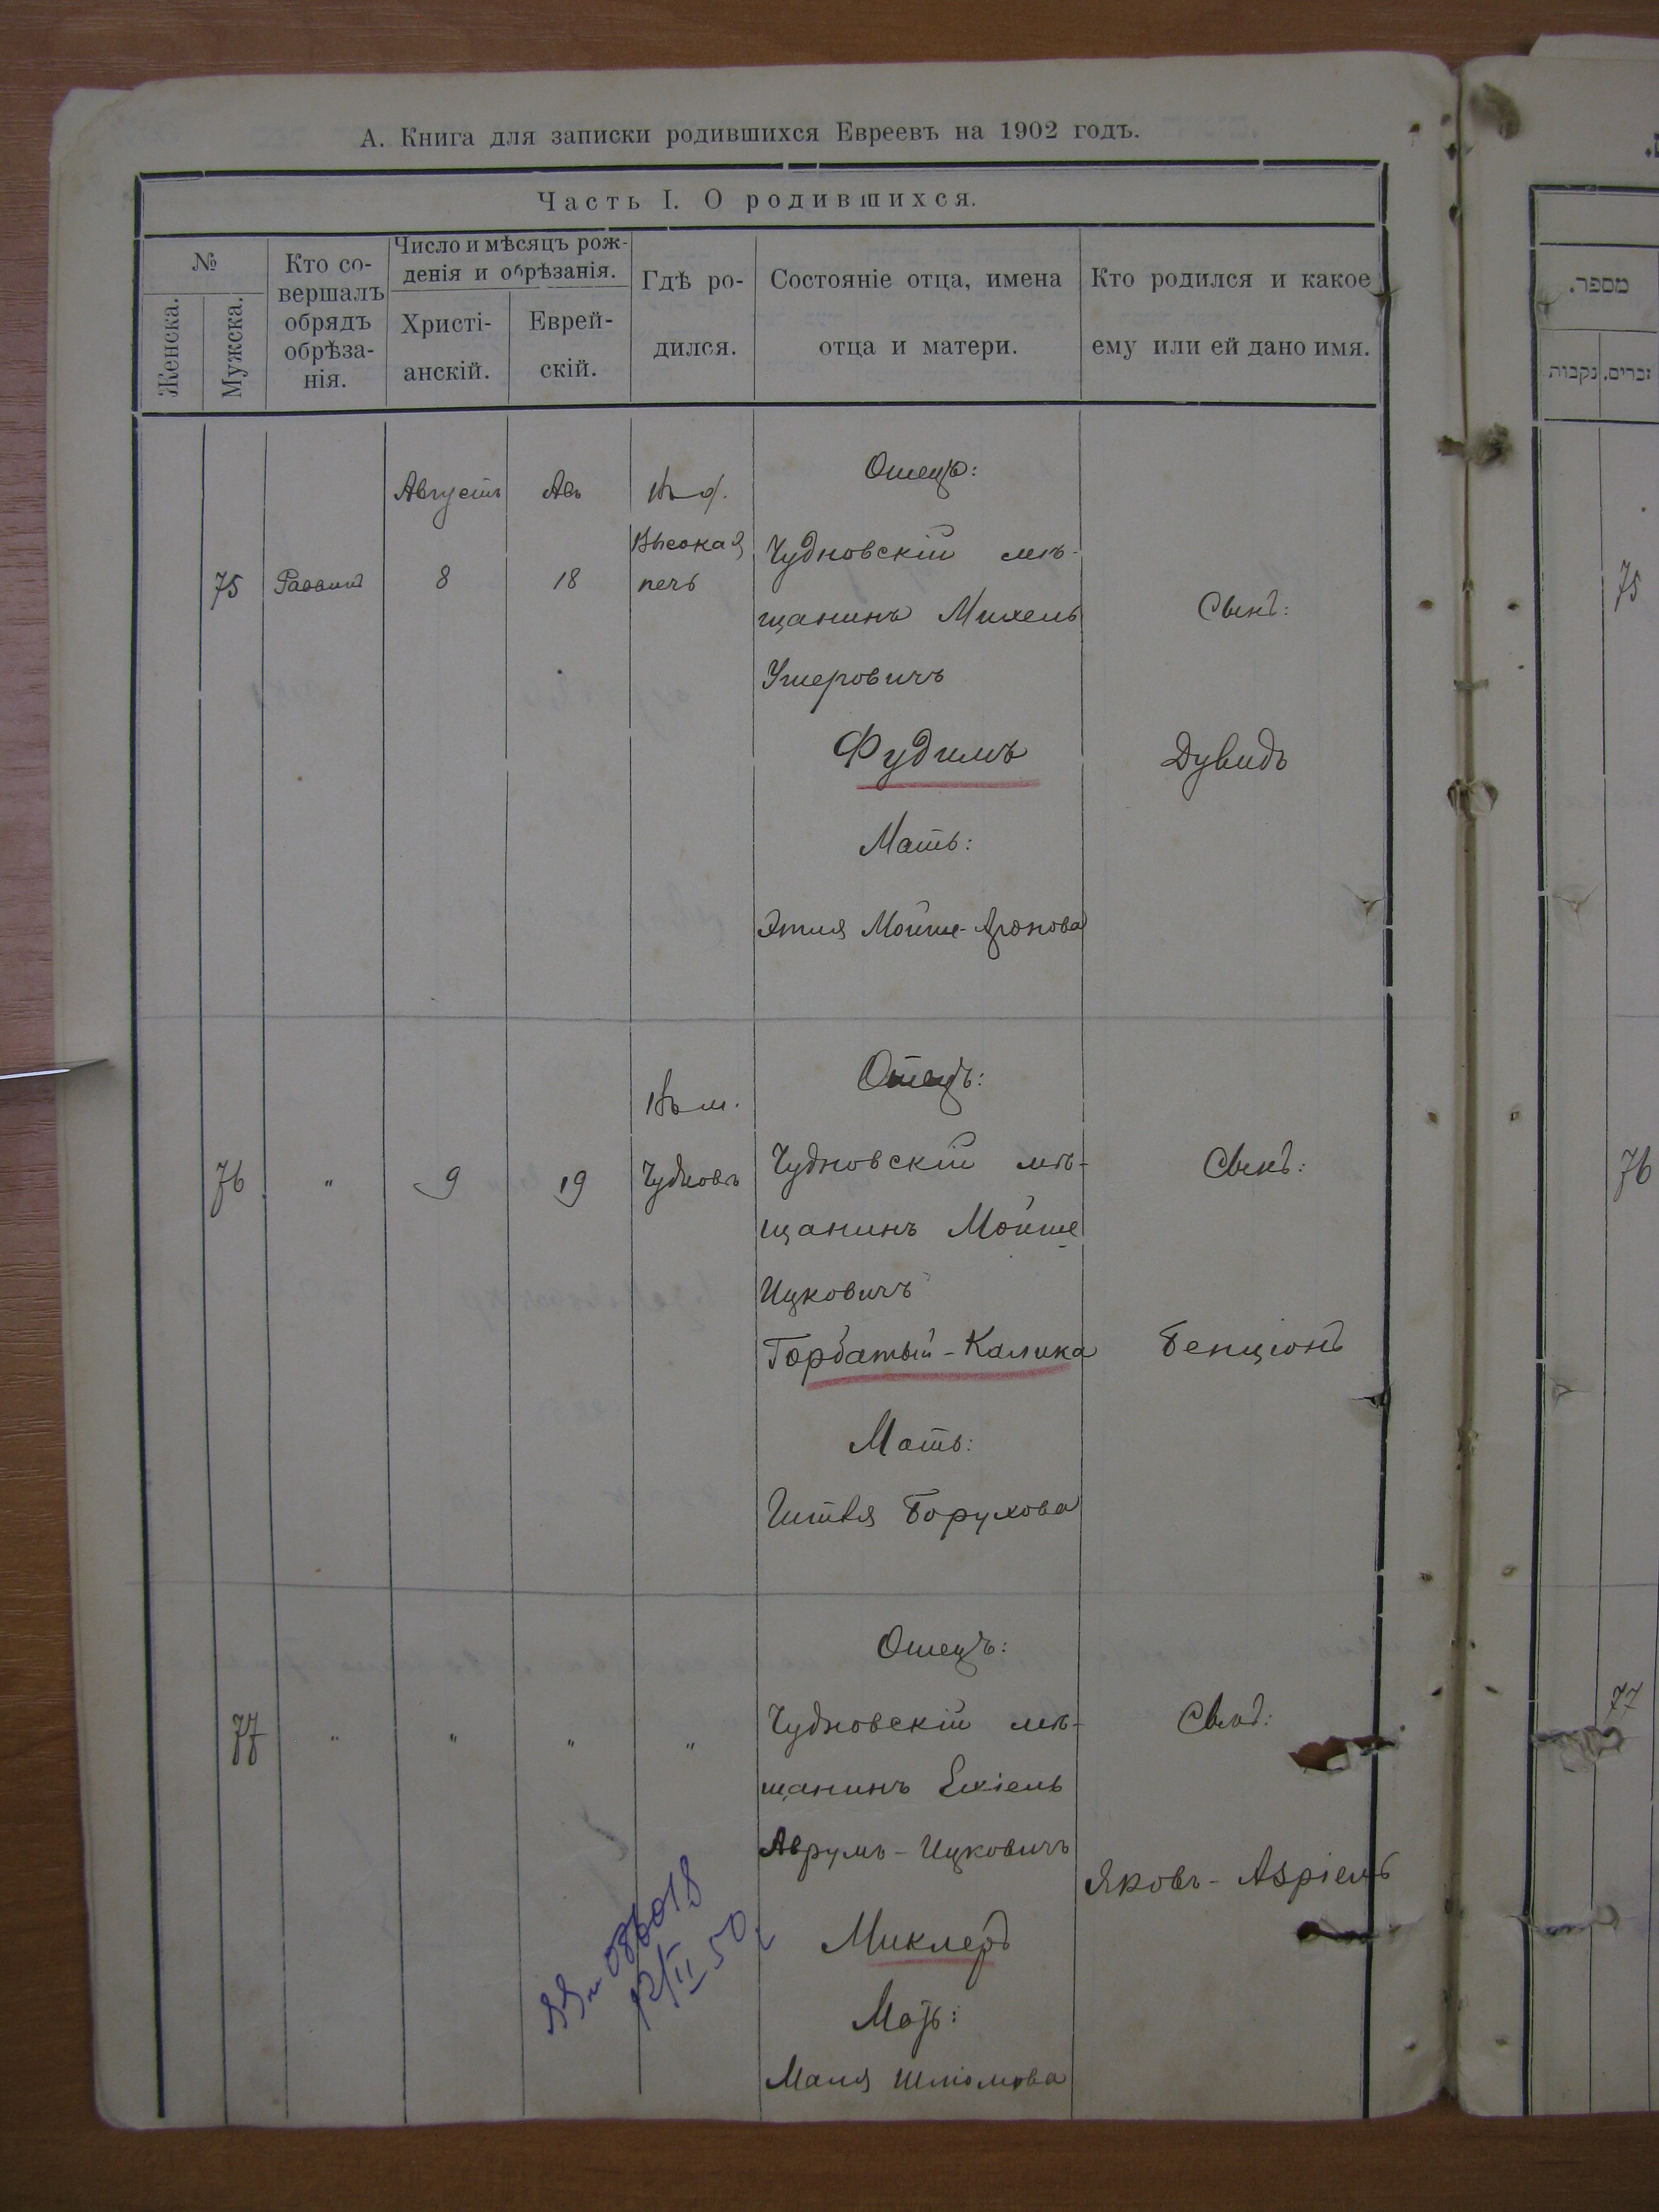 А. Книга для записки родившихся Евреевъ на 1902 годъ.
Часть I. О родившихся.
№
Женска.
Мужска.
Кто со-
вершалъ
обрядъ
обрѣза-
нія.
Число и мѣсяцъ рож-
денія и обрѣзанія.
Христі-
анскій.
Еврей-
скій.
Гдѣ ро-
дился.
Состояніе отца, имена
отца и матери.
Кто родился и какое
ему или ей дано имя.
75
Раввинъ
Августъ
8
Авъ
18
Въ
Высокая
печь
Отецъ:
Чудновскій мѣ-
щанинъ Михель
Ушеровичъ
Фудимъ
Мать:
Этля Мойше-Аронова
Сынъ:
Дувидъ
76
"
9
19
Въ м.
Чудновъ
Отецъ:
Чудновскій мѣ-
щанинъ Мойше
Ицковичъ
Горбатый-Калика
Мать:
Боруховa
Сынъ:
Бенціонъ
77
"
"
"
"
Отецъ:
Чудновскій мѣ-
щанинъ Ехіель
Аврумъ-Ицковичъ
Миклеръ
Мать:
Маля Шліомова
Сынъ:
Яковъ-Азріель
086018
12/II 50
מספר.
זכרים.
נקבות
75
76
77